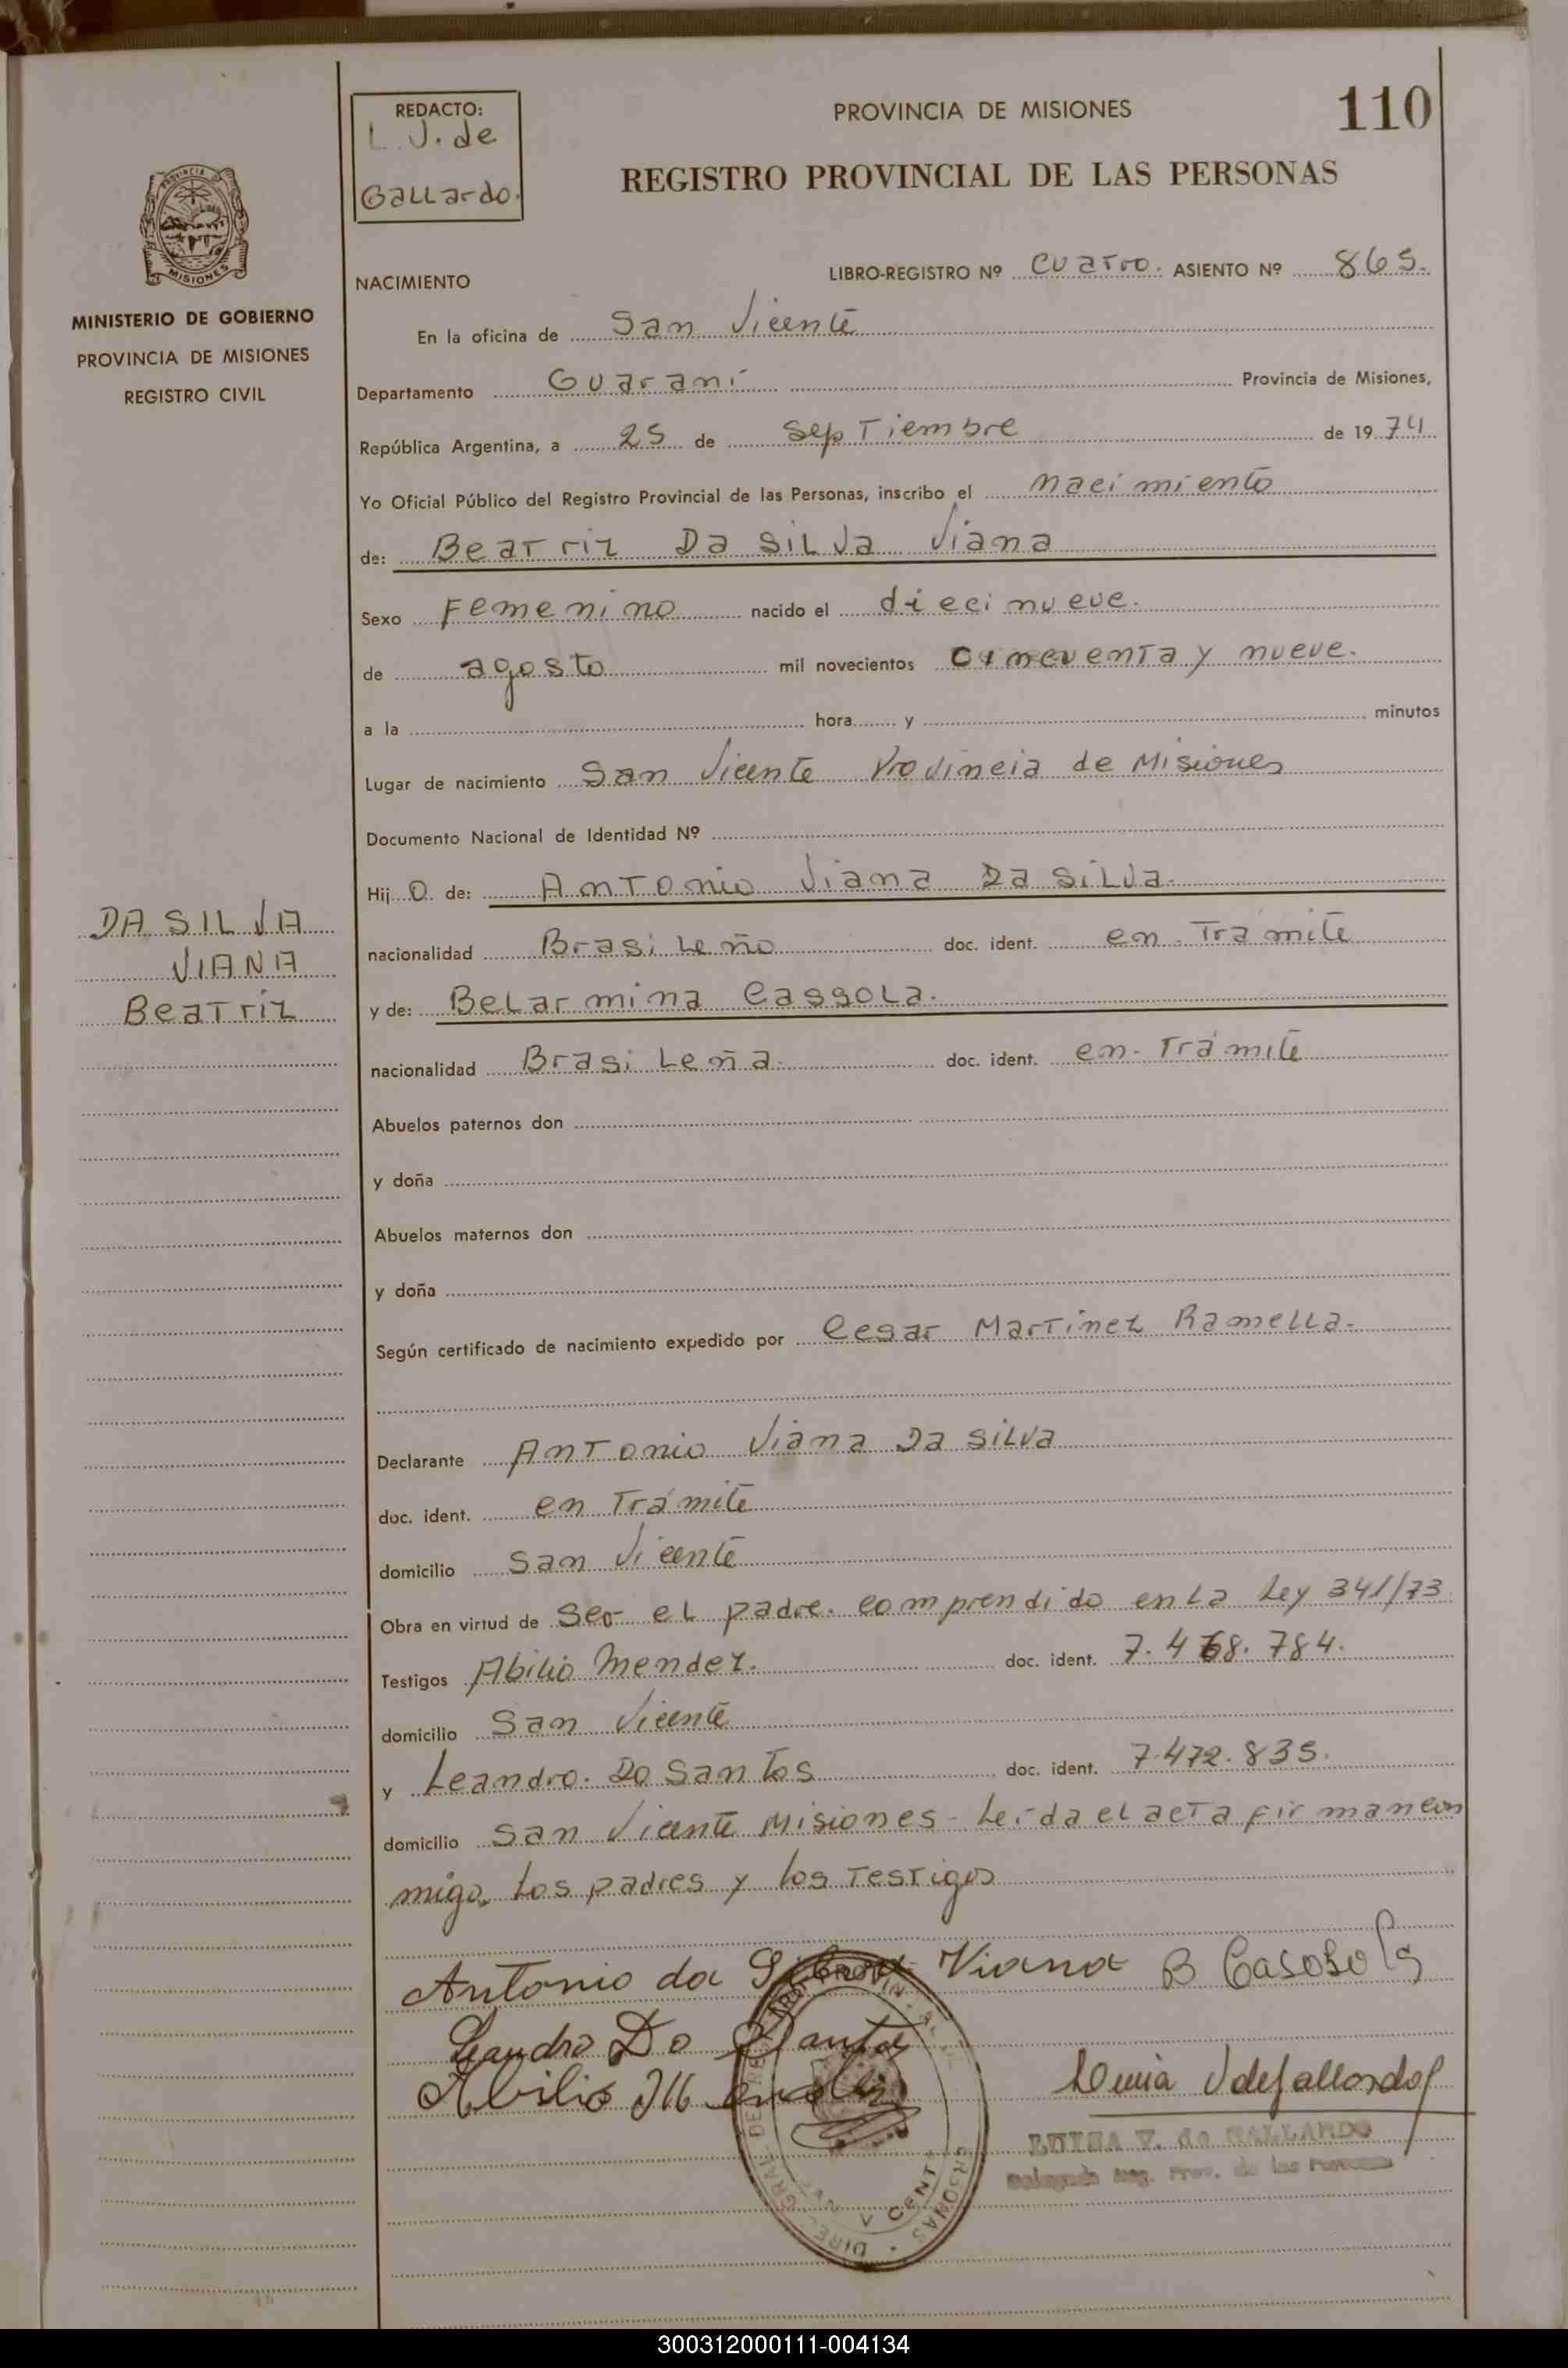 REDACTO:
L. V. de
Gallardo.
PROVINCIA DE MISIONES
110
REGISTRO PROVINCIAL DE LAS PERSONAS
PROVINCIA DE
MISIONES
MINISTERIO DE GOBIERNO
PROVINCIA DE MISIONES
REGISTRO CIVIL
NACIMIENTO
LIBRO-REGISTRO Nº cuarto. ASIENTO Nº 865.
En la oficina de San Vicente
Departamento Guaraní Provincia de Misiones,
República Argentina, a 25 de septiembre de 1974
Yo Oficial Público del Registro Provincial de las Personas, inscribo el nacimiento
de: Beatriz Da Silva Viana
Sexo Femenino nacido el diecinueve.
de agosto mil novecientos cincuenta y nueve.
a la hora y minutos
Lugar de nacimiento San Vicente Provincia de Misiones
Documento Nacional de Identidad Nº
Hij o de: Antonio Viana Da Silva.
nacionalidad Brasileño doc. ident. en trámite
y de: Belarmina Cassola.
nacionalidad Brasileña. doc. ident. en trámite
DA SILVA
VIANA
Beatriz
Abuelos paternos don
y doña
Abuelos maternos don
y doña
Según certificado de nacimiento expedido por Cesar Martinez Ramella.
Declarante Antonio Viana Da Silva
doc. ident. en trámite
domicilio San Vicente
Obra en virtud de ser el padre. comprendido en la Ley 341/73
Testigos Abilio Mendez. doc. ident. 7.468.784.
domicilio San Vicente
y Leandro. Do Santos doc. ident. 7.472.835.
domicilio San Vicente Misiones - Leída el acta firman con
migo, los padres y los testigos
Antonio da Silva Viana B Casosola
Leandro Do Santos
Abilio Mendez
Luisa V de Gallardo
LUISA V. de GALLARDO
Delegada Reg. Prov. de las Personas
300312000111-004134